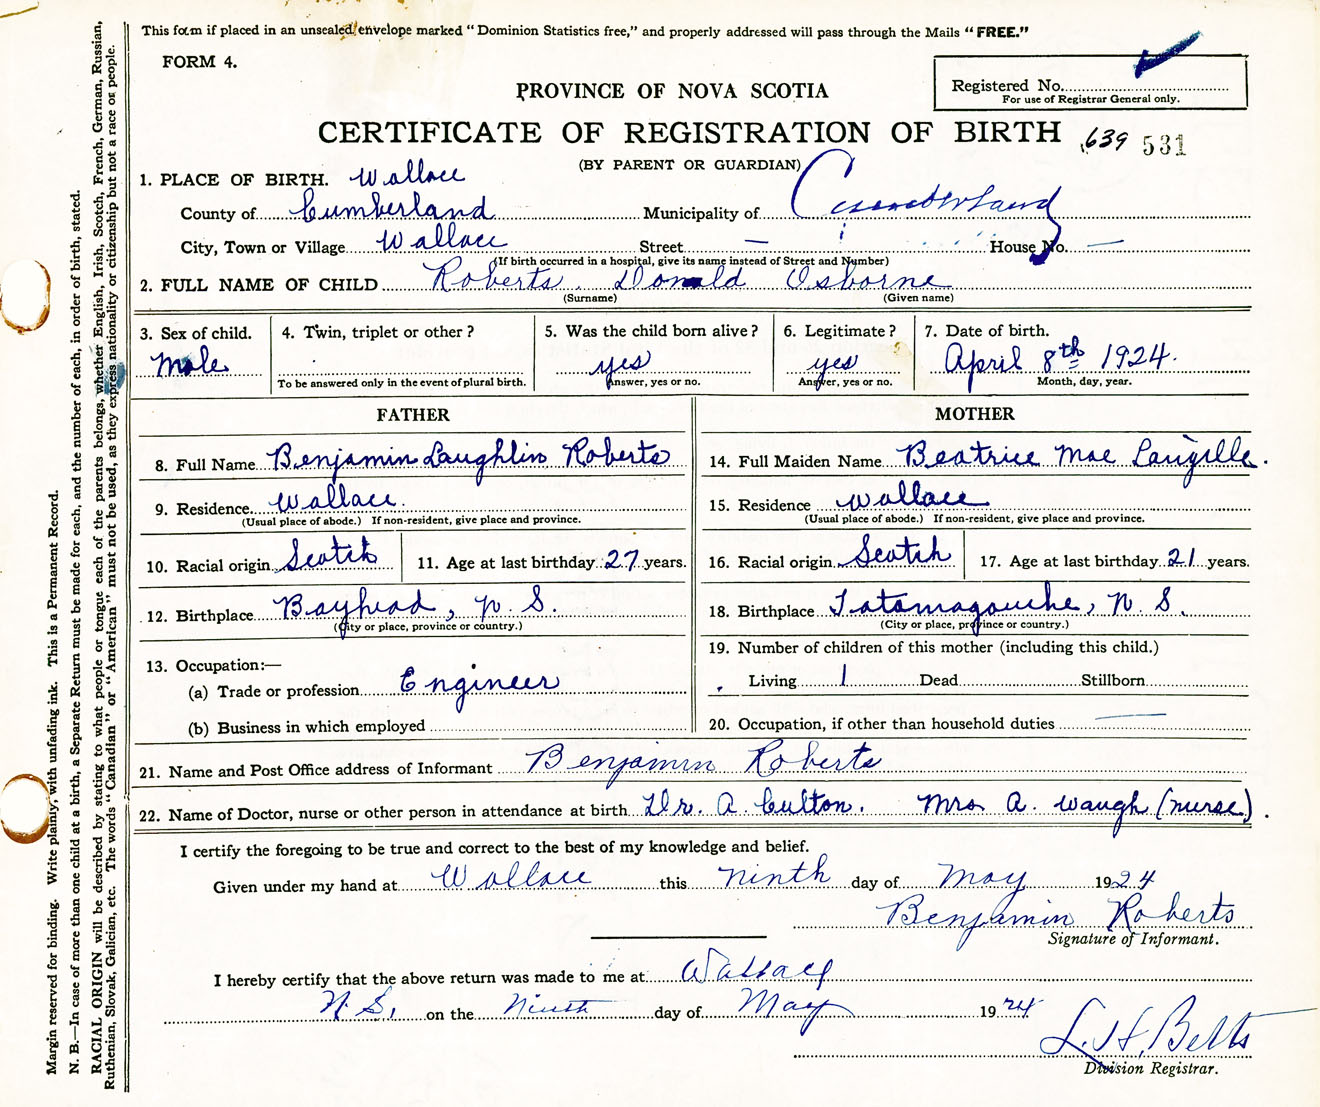 This form if placed in an unsealed envelope marked "Dominion Statistics free," and properly addressed will pass through the Mails "FREE."
FORM 4.
Registered No.
For use of Registrar General only.
PROVINCE OF NOVA SCOTIA
CERTIFICATE OF REGISTRATION OF BIRTH 639 531
(BY PARENT OR GUARDIAN)
1. PLACE OF BIRTH. Wallace
County of Cumberland Municipality of Cumberland
City, Town or Village Wallace Street — House No. —
(If birth occurred in a hospital, give its name instead of Street and Number)
2. FULL NAME OF CHILD Roberts. Donald Osborne
(Surname) (Given name)
3. Sex of child. 4. Twin, triplet or other? 5. Was the child born alive? 6. Legitimate? 7. Date of birth.
Male yes yes April 8th 1924.
To be answered only in the event of plural birth. Answer, yes or no. Answer, yes or no. Month, day, year.
FATHER MOTHER
8. Full Name Benjamin Laughlin Roberts 14. Full Maiden Name Beatrice Mae Langille.
9. Residence Wallace. 15. Residence Wallace
(Usual place of abode.) If non-resident, give place and province. (Usual place of abode.) If non-resident, give place and province.
10. Racial origin Scotch 11. Age at last birthday 27 years. 16. Racial origin Scotch 17. Age at last birthday 21 years.
12. Birthplace Bayhead, N. S. 18. Birthplace Tatamagouche, N. S.
(City or place, province or country.) (City or place, province or country.)
19. Number of children of this mother (including this child.)
13. Occupation:—
(a) Trade or profession Engineer Living 1 Dead Stillborn
(b) Business in which employed 20. Occupation, if other than household duties —
21. Name and Post Office address of Informant Benjamin Roberts
22. Name of Doctor, nurse or other person in attendance at birth Dr. A. Culton. Mrs A. Waugh (nurse).
I certify the foregoing to be true and correct to the best of my knowledge and belief.
Given under my hand at Wallace this ninth day of May 1924
Benjamin Roberts
Signature of Informant.
I hereby certify that the above return was made to me at Wallace
N.S., on the Ninth day of May 1924
L. H. Betts
Division Registrar.
Margin reserved for binding. Write plainly, with unfading ink. This is a Permanent Record.
N. B.—In case of more than one child at a birth, a Separate Return must be made for each, and the number of each, in order of birth, stated.
RACIAL ORIGIN will be described by stating to what people or tongue each of the parents belongs, whether English, Irish, Scotch, French, German, Russian,
Ruthenian, Slovak, Galician, etc. The words "Canadian" or "American" must not be used, as they express nationality or citizenship but not a race or people.